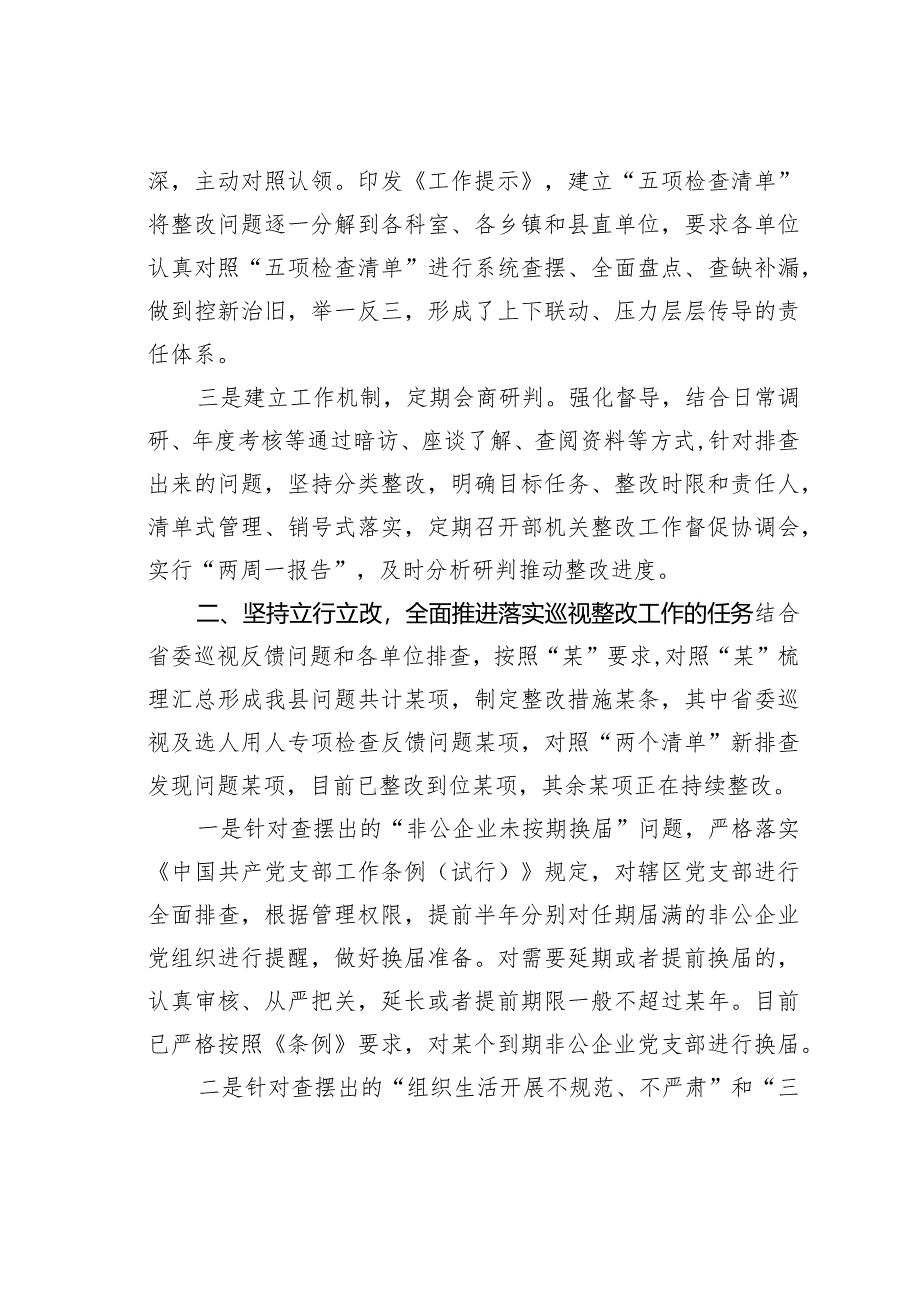 深，主动对照认领。印发《工作提示》，建立“五项检查清单”
将整改问题逐一分解到各科室、各乡镇和县直单位，要求各单位
认真对照“五项检查清单”进行系统查摆、全面盘点、查缺补漏，
做到控新治旧，举一反三，形成了上下联动、压力层层传导的责
任体系。
三是建立工作机制，定期会商研判。强化督导，结合日常调
研、年度考核等通过暗访、座谈了解、查阅资料等方式,针对排查
出来的问题，坚持分类整改，明确目标任务、整改时限和责任人，
清单式管理、销号式落实，定期召开部机关整改工作督促协调会，
实行“两周一报告”，及时分析研判推动整改进度。
二、坚持立行立改，全面推进落实巡视整改工作的任务结合
省委巡视反馈问题和各单位排查，按照“某”要求,对照“某”梳
理汇总形成我县问题共计某项，制定整改措施某条，其中省委巡
视及选人用人专项检查反馈问题某项，对照“两个清单”新排查
发现问题某项，目前已整改到位某项，其余某项正在持续整改。
一是针对查摆出的“非公企业未按期换届”问题，严格落实
《中国共产党支部工作条例（试行）》规定，对辖区党支部进行
全面排查，根据管理权限，提前半年分别对任期届满的非公企业
党组织进行提醒，做好换届准备。对需要延期或者提前换届的，
认真审核、从严把关，延长或者提前期限一般不超过某年。目前
已严格按照《条例》要求，对某个到期非公企业党支部进行换届。
二是针对查摆出的“组织生活开展不规范、不严肃”和“三